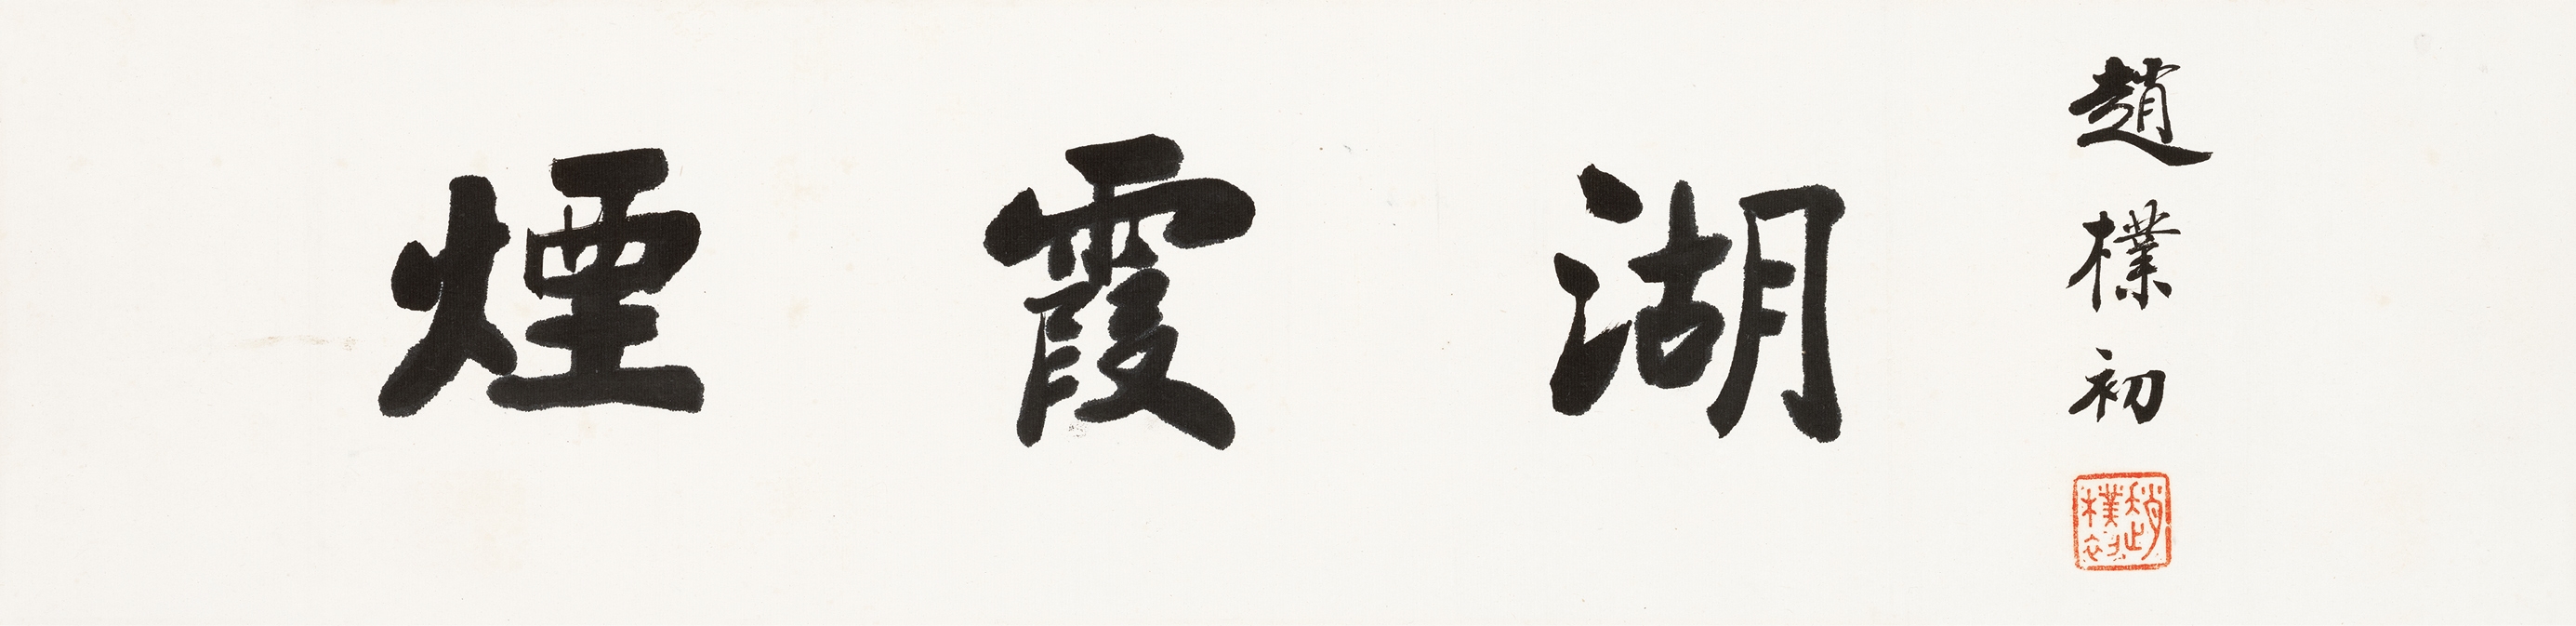 煙霞湖
趙樸初
趙樸初